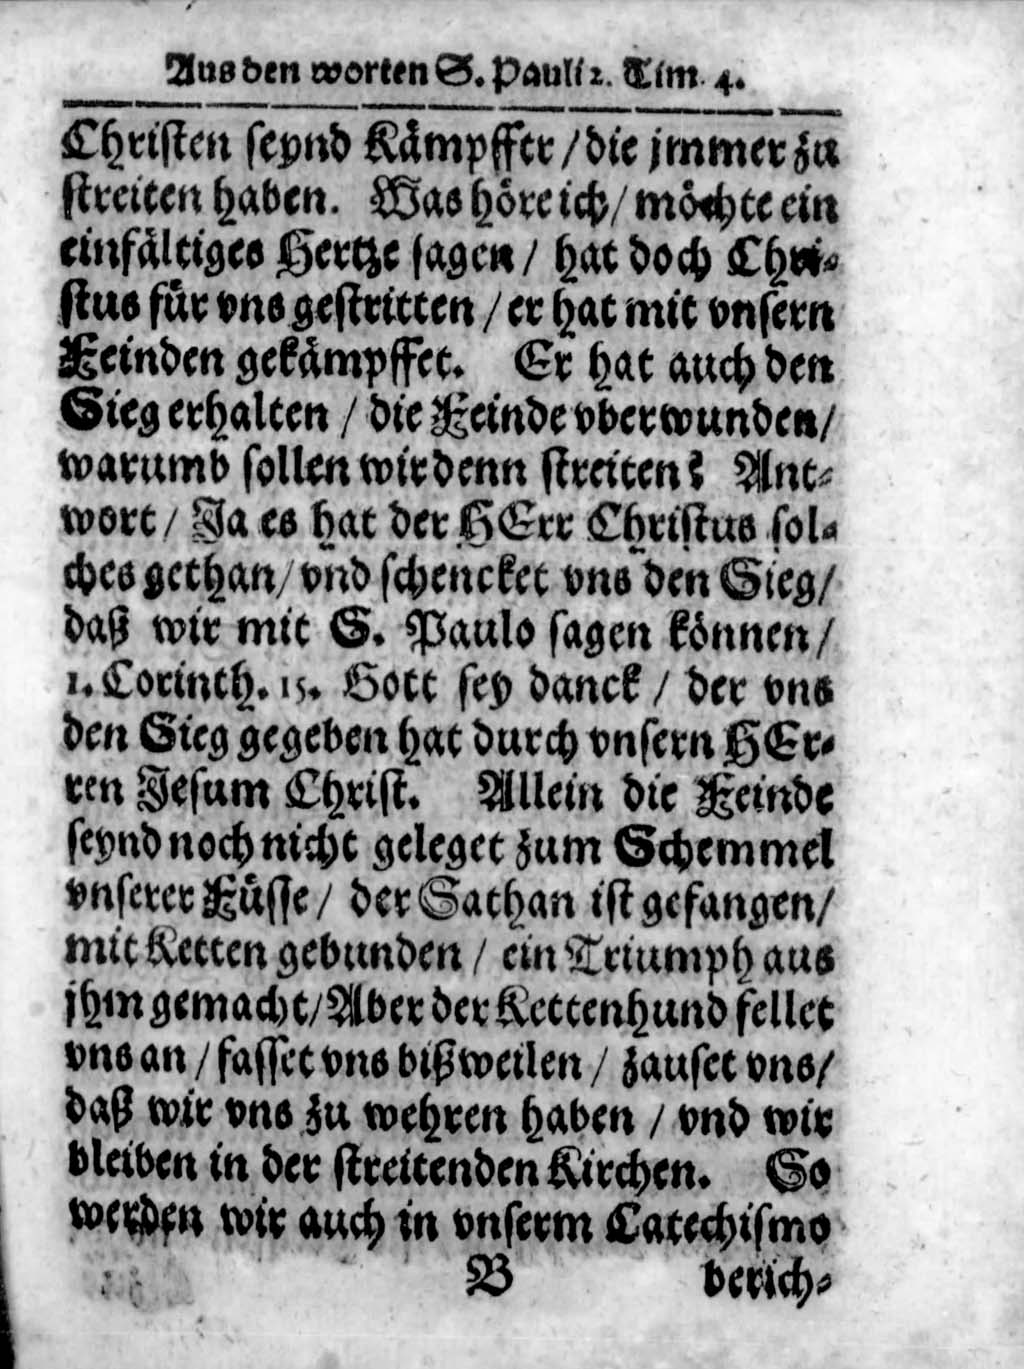 Aus den worten S. Pauli 2. Tim. 4.
Christen seynd Kämpffer / die jmmer zu
streiten haben. Was höre ich / möchte ein
einfältiges Hertze sagen / hat doch Chri-
stus für vns gestritten / er hat mit vnsern
Feinden gekämpffet. Er hat auch den
Sieg erhalten / die Feinde vberwunden /
warumb sollen wir denn streiten? Ant-
wort / Ja es hat der HErr Christus sol-
ches gethan / vnd schencket vns den Sieg /
daß wir mit S. Paulo sagen können /
1. Corinth. 15. Gott sey danck / der vns
den Sieg gegeben hat durch vnsern HEr-
ren Jesum Christ. Allein die Feinde
seynd noch nicht geleget zum Schemmel
vnserer Füsse / der Sathan ist gefangen /
mit Ketten gebunden / ein Triumph aus
jhm gemacht / Aber der Kettenhund fellet
vns an / fasset vns bißweilen / zauset vns /
daß wir vns zu wehren haben / vnd wir
bleiben in der streitenden Kirchen. So
werden wir auch in vnserm Catechismo
B berich-